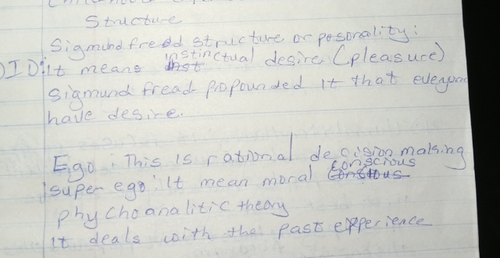 Structure
Sigmund freud structure or posonality:
ID: It means instinctual desire (pleasure)
Sigmund fread propounded It that everyone
have desire.
Ego: This is rational decision making
super ego: It mean moral conscious
phychoanalitic theory
It deals with the past experience